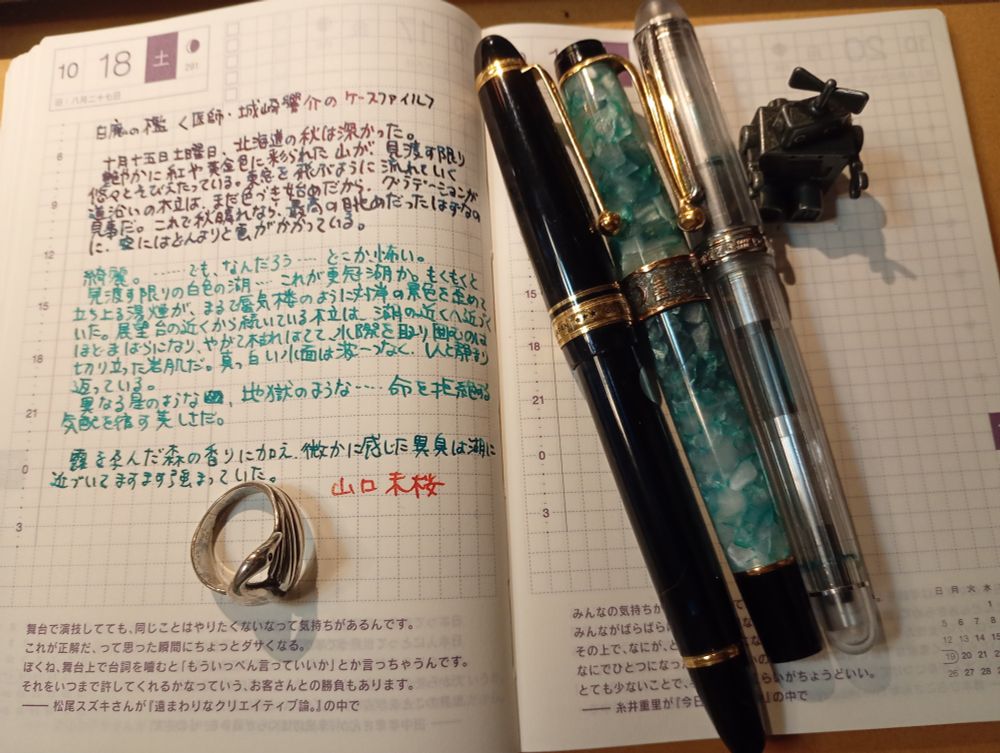 10 18 土
291
旧:八月二十七日
白魔の檻 〈医師・城崎響介のケースファイル〉
十月十五日土曜日、北海道の秋は深かった。
艶やかに紅や黄金色に彩られた山が、見渡す限り
悠々とそびえたっている。車窓を飛ぶように流れていく
道沿いの木立は、まだ色づき始めだから、グラデーションが
見事だ。これで秋晴れなら、最高の眺めだったはずなの
に、空にはどんよりと雲がかかっている。
綺麗。……でも、なんだろう……どこか怖い。
見渡す限りの白色の湖…これが更冠湖か。もくもくと
立ち上る湯煙が、まるで蜃気楼のように対岸の景色を歪めて
いた。展望台の近くから続いている木立は、湖の近くへ近づく
ほどまばらになり、やがて木が
切り立った岩肌だ。真っ白い水面は波一つなく、しんと静まり
返っている。
異なる星のような、地獄のような……命を拒絶する
気配を宿す美しさだ。
霧を孕んだ森の香りに加え、微かに感じた異臭は湖に
近づいてますます強まっていた。
山口未桜
6
9
12
15
18
21
0
3
舞台で演技してても、同じことはやりたくないなって気持ちがあるんです。
これが正解だ、って思った瞬間にちょっとダサくなる。
ぼくね、舞台上で台詞を噛むと「もういっぺん言っていいか」とか言っちゃうんです。
それをいつまで許してくれるかなっていう、お客さんとの勝負もあります。
―― 松尾スズキさんが『遠まわりなクリエイティブ論。』の中で
10
15
18
21
0
3
みんなの気持ちが
みんながばらばら
その上、なにが、
なにでひとつになった
とても少ないことで、
らいがちょうどいい。
―― 糸井重里が『今日
』の中で
日 月 火 水
1
5 6 7 8
12 13 14 15
19 20 21 22
26 27 28